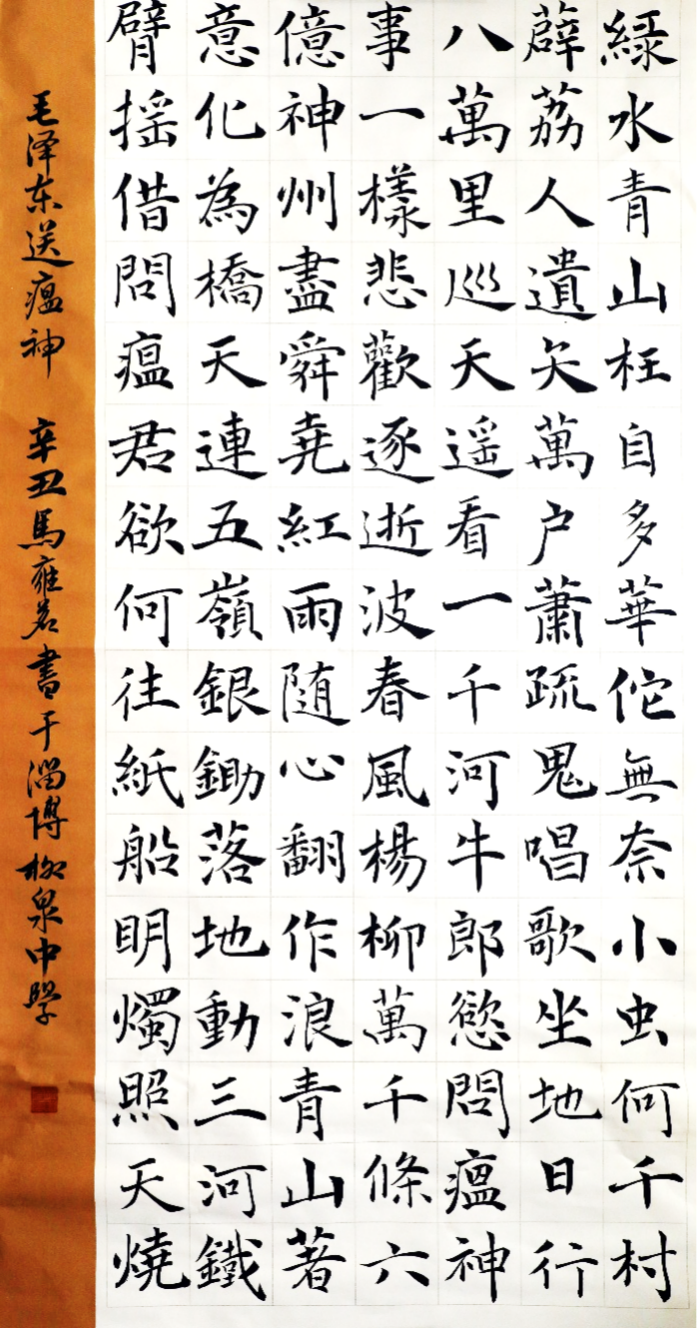 緑水青山枉自多華佗無奈小虫何千村
薜荔人遺矢萬户蕭疏鬼唱歌坐地日行
八萬里巡天遥看一千河牛郎慾問瘟神
事一樣悲歡逐逝波春風楊柳萬千條六
億神州盡舜尭紅雨随心翻作浪青山著
意化為橋天連五嶺銀鋤落地動三河鐵
臂摇借問瘟君欲何往紙船明燭照天燒
毛泽东送瘟神 辛丑馬雍茗書于淄博柳泉中學